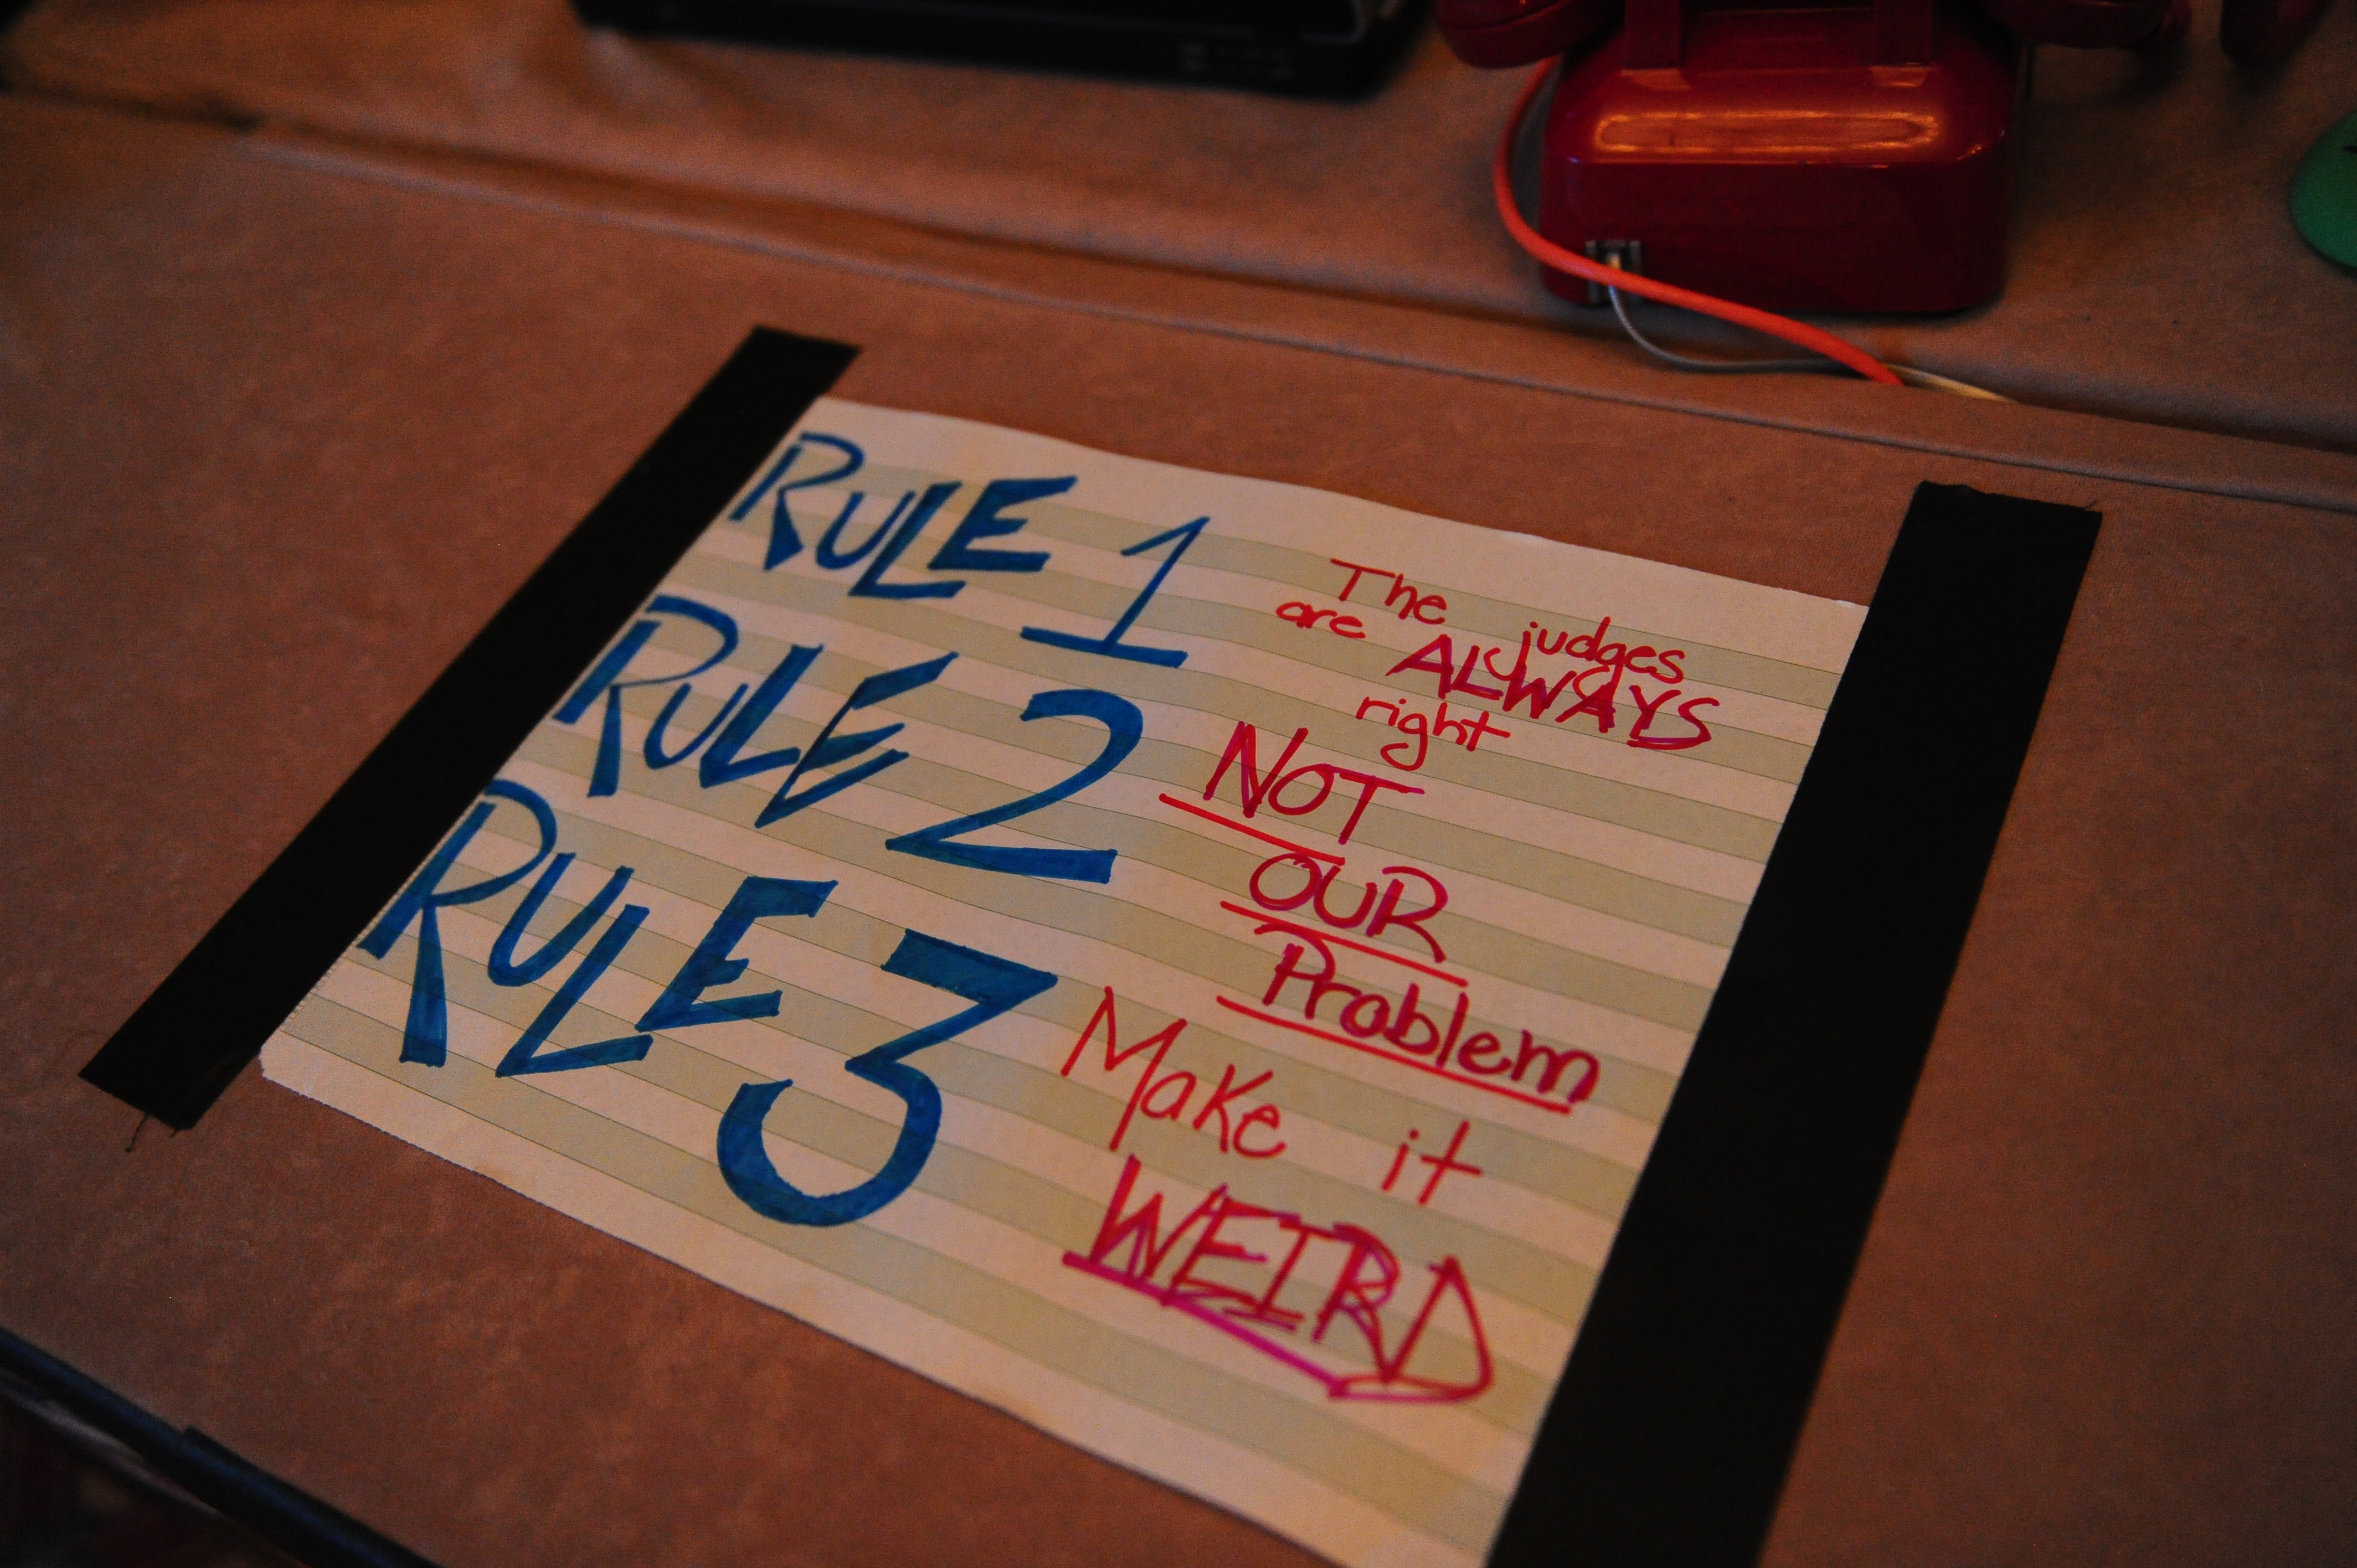 RULE 1
The judges
are ALWAYS
right
RULE 2
NOT
OUR
Problem
RULE 3
Make it
WEIRD